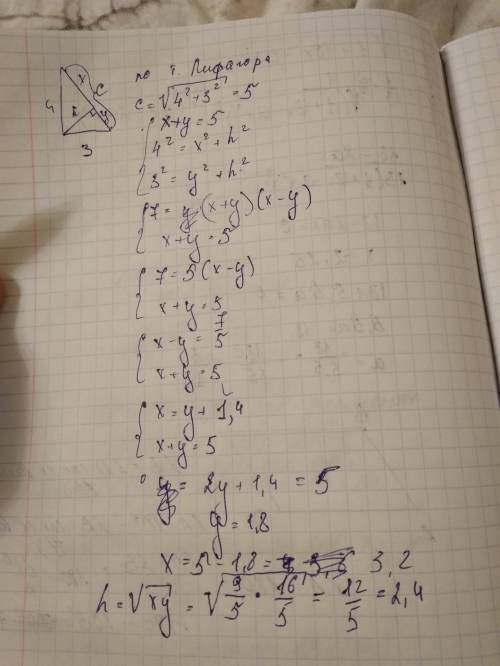 по т. Пифагора
x
c
4
h
y
3
c = √4² + 3² = 5
x+y = 5
4² = x² + h²
3² = y² + h²
7 = (x+y)(x-y)
x+y = 5
7 = 5(x-y)
x+y = 5
x-y = 7/5
x+y = 5
x = y + 1,4
x+y = 5
2y + 1,4 = 5
y = 1,8
x = 5 - 1,8 = 3,2
h = √xy = √9/5 · 16/5 = 12/5 = 2,4